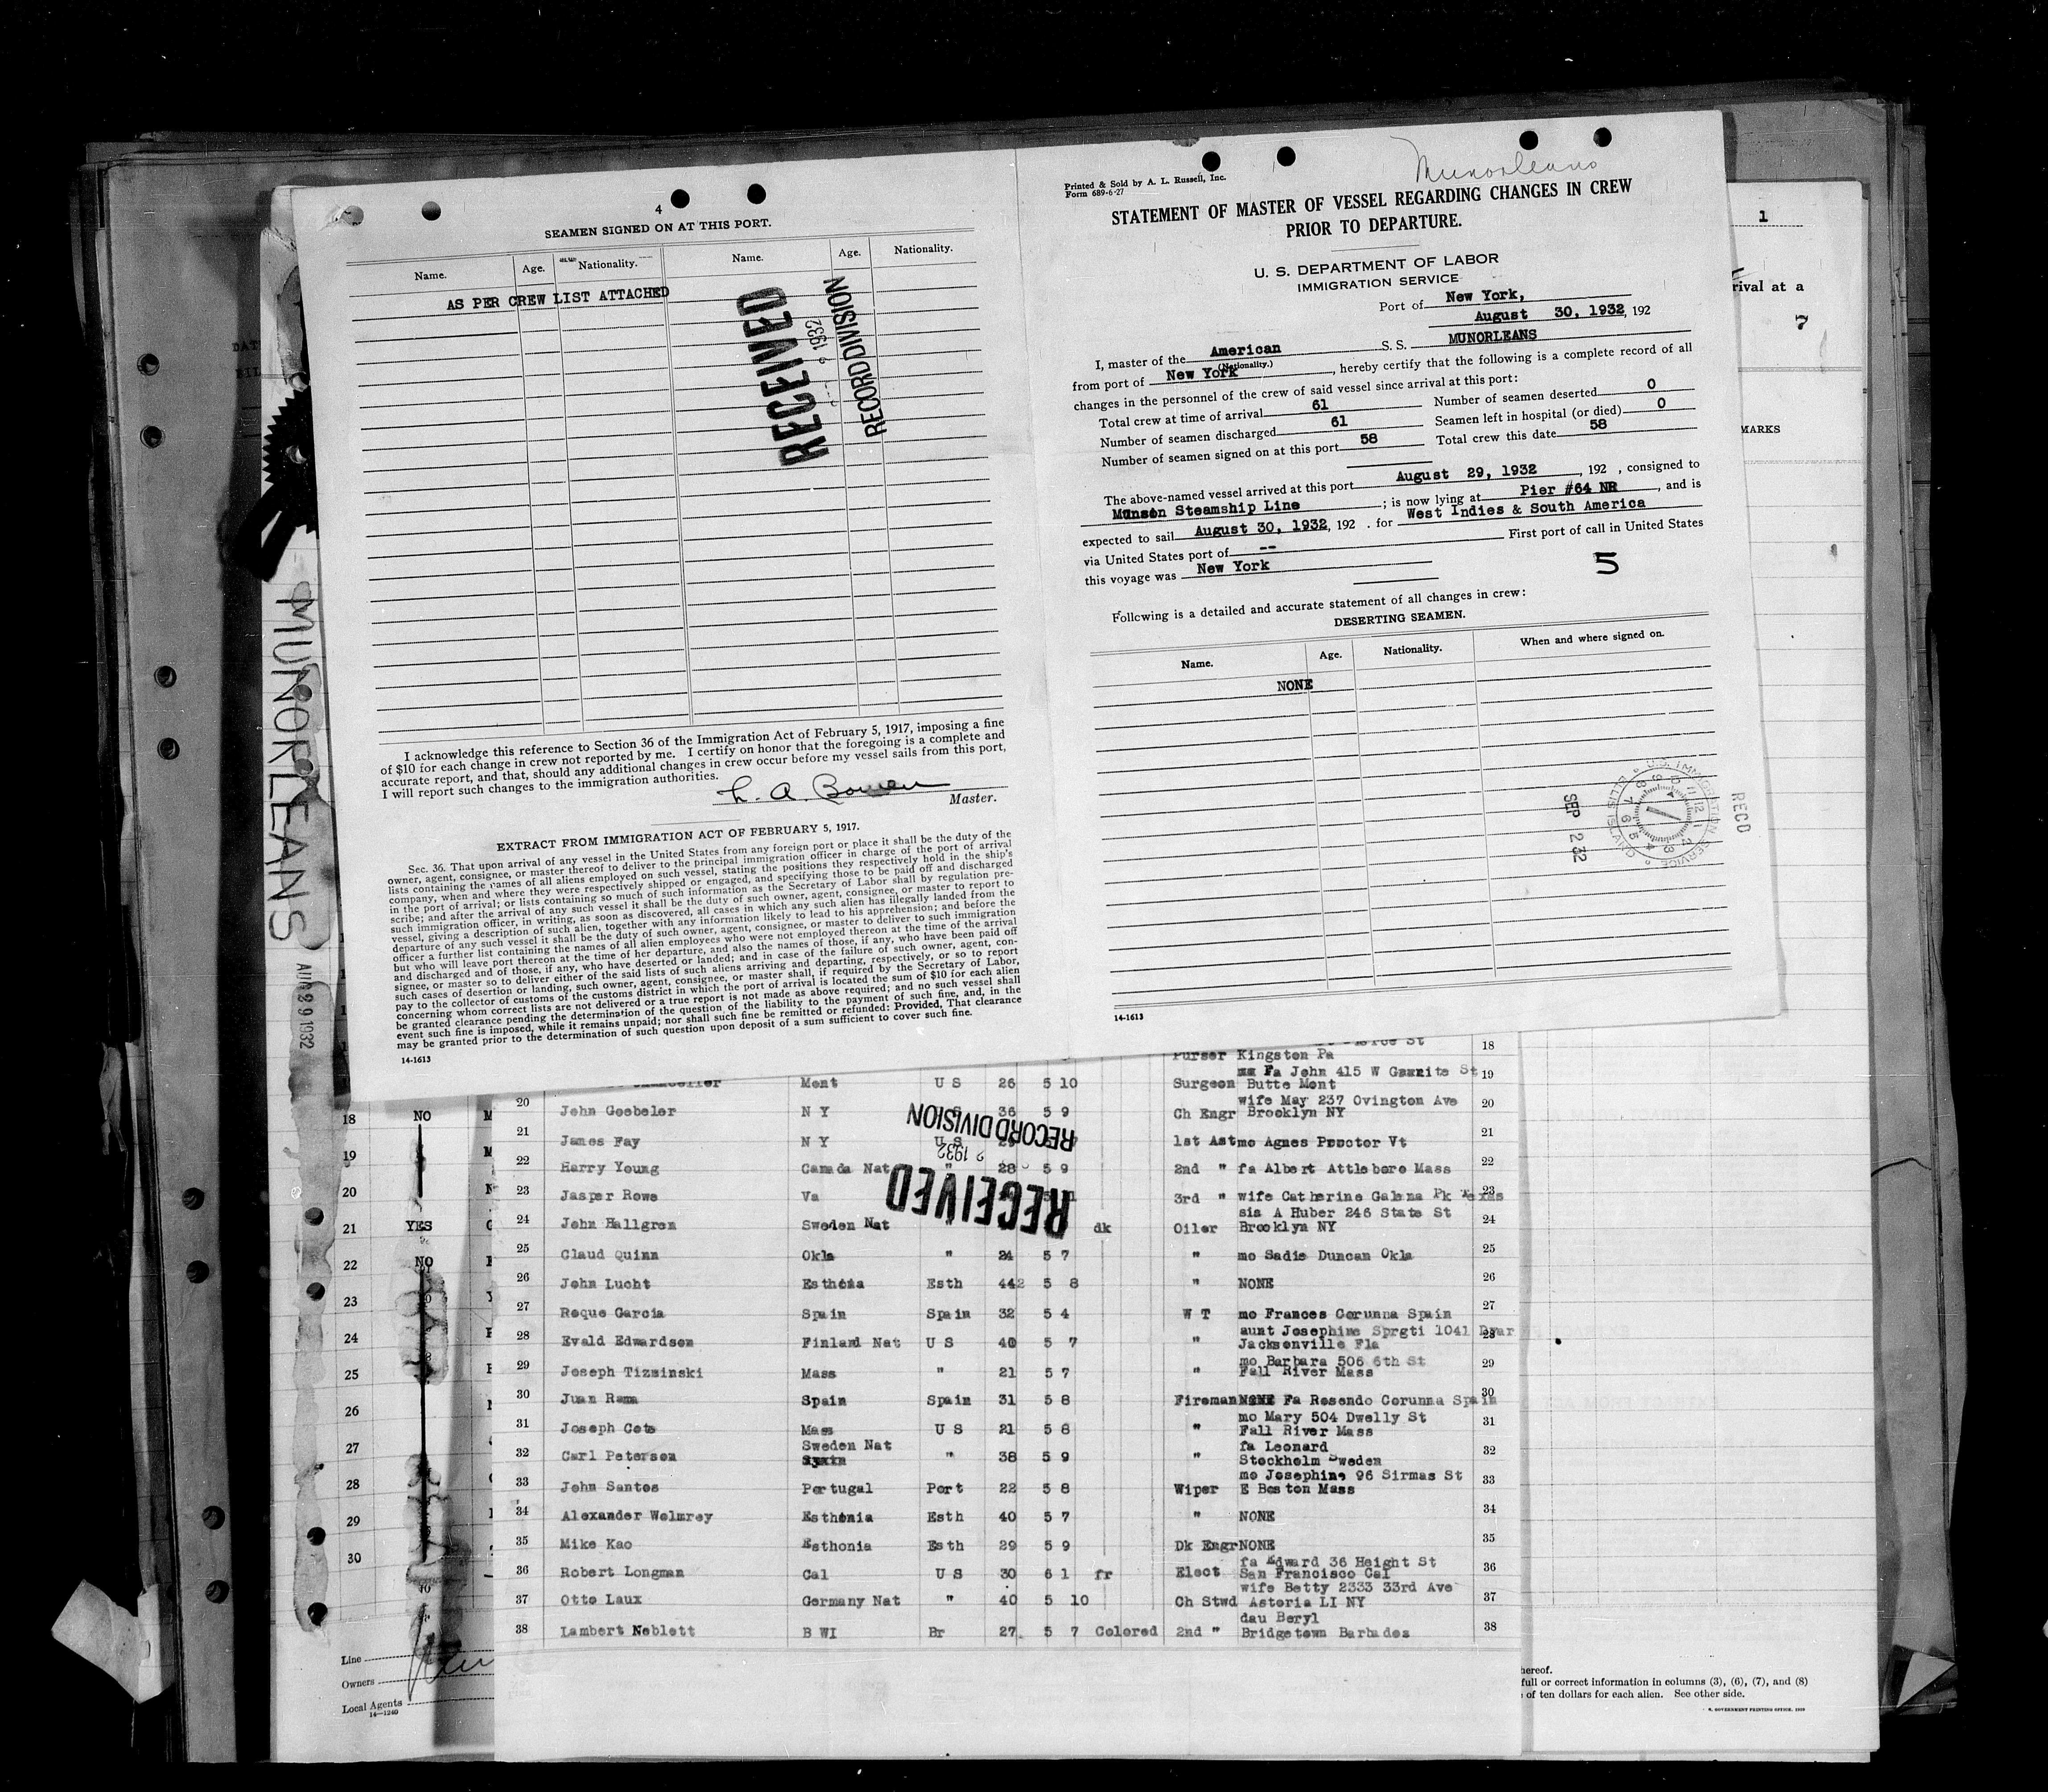 4
SEAMEN SIGNED ON AT THIS PORT.
Name. Age. Nationality. Name. Age. Nationality.
AS PER CREW LIST ATTACHED
RECEIVED
1932
RECORD DIVISION
I acknowledge this reference to Section 36 of the Immigration Act of February 5, 1917, imposing a fine
of $10 for each change in crew not reported by me. I certify on honor that the foregoing is a complete and
accurate report, and that, should any additional changes in crew occur before my vessel sails from this port,
I will report such changes to the immigration authorities.
L. A. Bowen
Master.
EXTRACT FROM IMMIGRATION ACT OF FEBRUARY 5, 1917.
Sec. 36. That upon arrival of any vessel in the United States from any foreign port or place it shall be the duty of the
owner, agent, consignee, or master thereof to deliver to the principal immigration officer in charge of the port of arrival
lists containing the names of all aliens employed on such vessel, stating the positions they respectively hold in the ship's
company, when and where they were respectively shipped or engaged, and specifying those to be paid off and discharged
in the port of arrival; or lists containing so much of such information as the Secretary of Labor shall by regulation pre-
scribe; and after the arrival of any such vessel it shall be the duty of such owner, agent, consignee, or master to report to
such immigration officer, in writing, as soon as discovered, all cases in which any such alien has illegally landed from the
vessel, giving a description of such alien, together with any information likely to lead to his apprehension; and before the
departure of any such vessel it shall be the duty of such owner, agent, consignee, or master to deliver to such immigration
officer a further list containing the names of all alien employees who were not employed thereon at the time of the arrival
but who will leave port thereon at the time of her departure, and also the names of those, if any, who have been paid off
and discharged and of those, if any, who have deserted or landed; and in case of the failure of such owner, agent, con-
signee, or master so to deliver either of the said lists of such aliens arriving and departing, respectively, or so to report
such cases of desertion or landing, such owner, agent, consignee, or master shall, if required by the Secretary of Labor,
pay to the collector of customs of the customs district in which the port of arrival is located the sum of $10 for each alien
concerning whom correct lists are not delivered or a true report is not made as above required; and no such vessel shall
be granted clearance pending the determination of the question of the liability to the payment of such fine, and, in the
event such fine is imposed, while it remains unpaid; nor shall such fine be remitted or refunded: Provided, That clearance
may be granted prior to the determination of such question upon deposit of a sum sufficient to cover such fine.
14-1613
Munorleans
Printed & Sold by A. L. Russell, Inc.
Form 689-6-27
STATEMENT OF MASTER OF VESSEL REGARDING CHANGES IN CREW
PRIOR TO DEPARTURE.
U. S. DEPARTMENT OF LABOR
IMMIGRATION SERVICE
Port of New York,
August 30, 1932, 192
I, master of the American S. S. MUNORLEANS
(Nationality.)
from port of New York, hereby certify that the following is a complete record of all
changes in the personnel of the crew of said vessel since arrival at this port:
Total crew at time of arrival 61 Number of seamen deserted 0
Number of seamen discharged 61 Seamen left in hospital (or died) 0
Number of seamen signed on at this port 58 Total crew this date 58
The above-named vessel arrived at this port August 29, 1932, 192 , consigned to
Munson Steamship Line ; is now lying at Pier #64 NR, and is
expected to sail August 30, 1932, 192 . for West Indies & South America
via United States port of -- First port of call in United States
this voyage was New York
5
Following is a detailed and accurate statement of all changes in crew:
DESERTING SEAMEN.
Name. Age. Nationality. When and where signed on.
NONE
RECD
U.S. IMMIGRATION SERVICE ELLIS ISLAND
SEP 2 32
14-1613
1
rival at a
7
MARKS
MUNORLEANS
AUG 29 1932
18 NO
19
20
21 YES
22 NO
23
24
25
26
27
28
29
30
Line
Owners
Local Agents
14-1240
18
Purser Kingston Pa
Fa John 415 W Granite St 19
Mont U S 26 5 10 Surgeon Butte Mont
wife May 237 Ovington Ave
20 John Goebeler N Y 36 5 9 Ch Engr Brooklyn NY 20
21 James Fay N Y U S 1st Ast mo Agnes Proctor Vt 21
22 Harry Young Canada Nat " 28 5 9 2nd " fa Albert Attleboro Mass 22
23 Jasper Rowe Va 3rd " wife Catherine Galena Pk Texas 23
sis A Huber 246 State St
24 John Hallgren Sweden Nat dk Oiler Brooklyn NY 24
25 Claud Quinn Okla " 24 5 7 " mo Sadie Duncan Okla 25
26 John Lucht Esthonia Esth 442 5 8 " NONE 26
27 Roque Garcia Spain Spain 32 5 4 W T mo Frances Corunna Spain 27
aunt Josephine Sprgti 1041 Dvar
28 Evald Edwardson Finland Nat U S 40 5 7 " Jacksonville Fla 28
mo Barbara 506 6th St
29 Joseph Tizminski Mass " 21 5 7 " Fall River Mass 29
30 Juan Rama Spain Spain 31 5 8 Fireman NONE Fa Rosendo Corunna Spain 30
mo Mary 504 Dwelly St
31 Joseph Cote Mass U S 21 5 8 " Fall River Mass 31
Sweden Nat fa Leonard
32 Carl Peterson Spain " 38 5 9 " Stockholm Sweden 32
mo Josephine 96 Sirmas St
33 John Santos Portugal Port 22 5 8 Wiper E Boston Mass 33
34 Alexander Welmrey Esthonia Esth 40 5 7 " NONE 34
35 Mike Kao Esthonia Esth 29 5 9 Dk Engr NONE 35
fa Edward 36 Height St
36 Robert Longman Cal U S 30 6 1 fr Elect San Francisco Cal 36
wife Betty 2333 33rd Ave
37 Otto Laux Germany Nat " 40 5 10 Ch Stwd Astoria LI NY 37
dau Beryl
38 Lambert Neblett B WI Br 27 5 7 Colored 2nd " Bridgetown Barbados 38
RECORD DIVISION
2 1932
RECEIVED
hereof.
full or correct information in columns (3), (6), (7), and (8)
of ten dollars for each alien. See other side.
GOVERNMENT PRINTING OFFICE